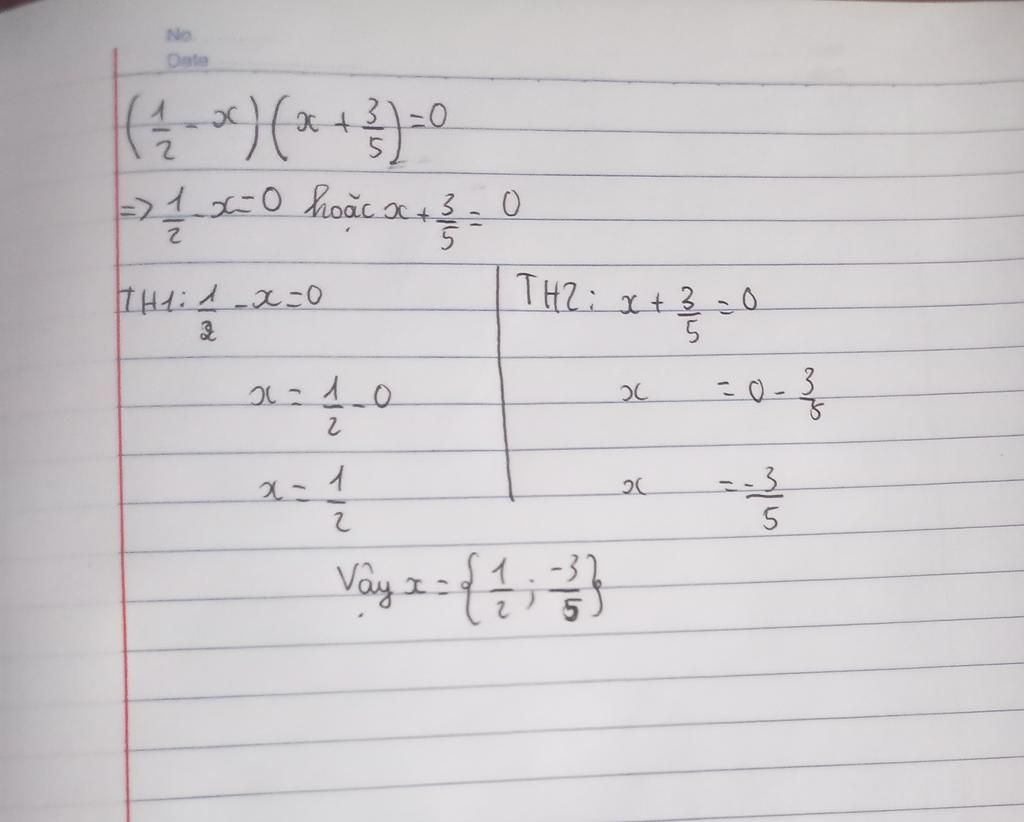 No.
Date
(1/2 - x)(x + 3/5) = 0
=> 1/2 - x = 0 hoặc x + 3/5 = 0
TH1: 1/2 - x = 0
x = 1/2 - 0
x = 1/2
TH2: x + 3/5 = 0
x = 0 - 3/5
x = -3/5
Vậy x = {1/2 ; -3/5}